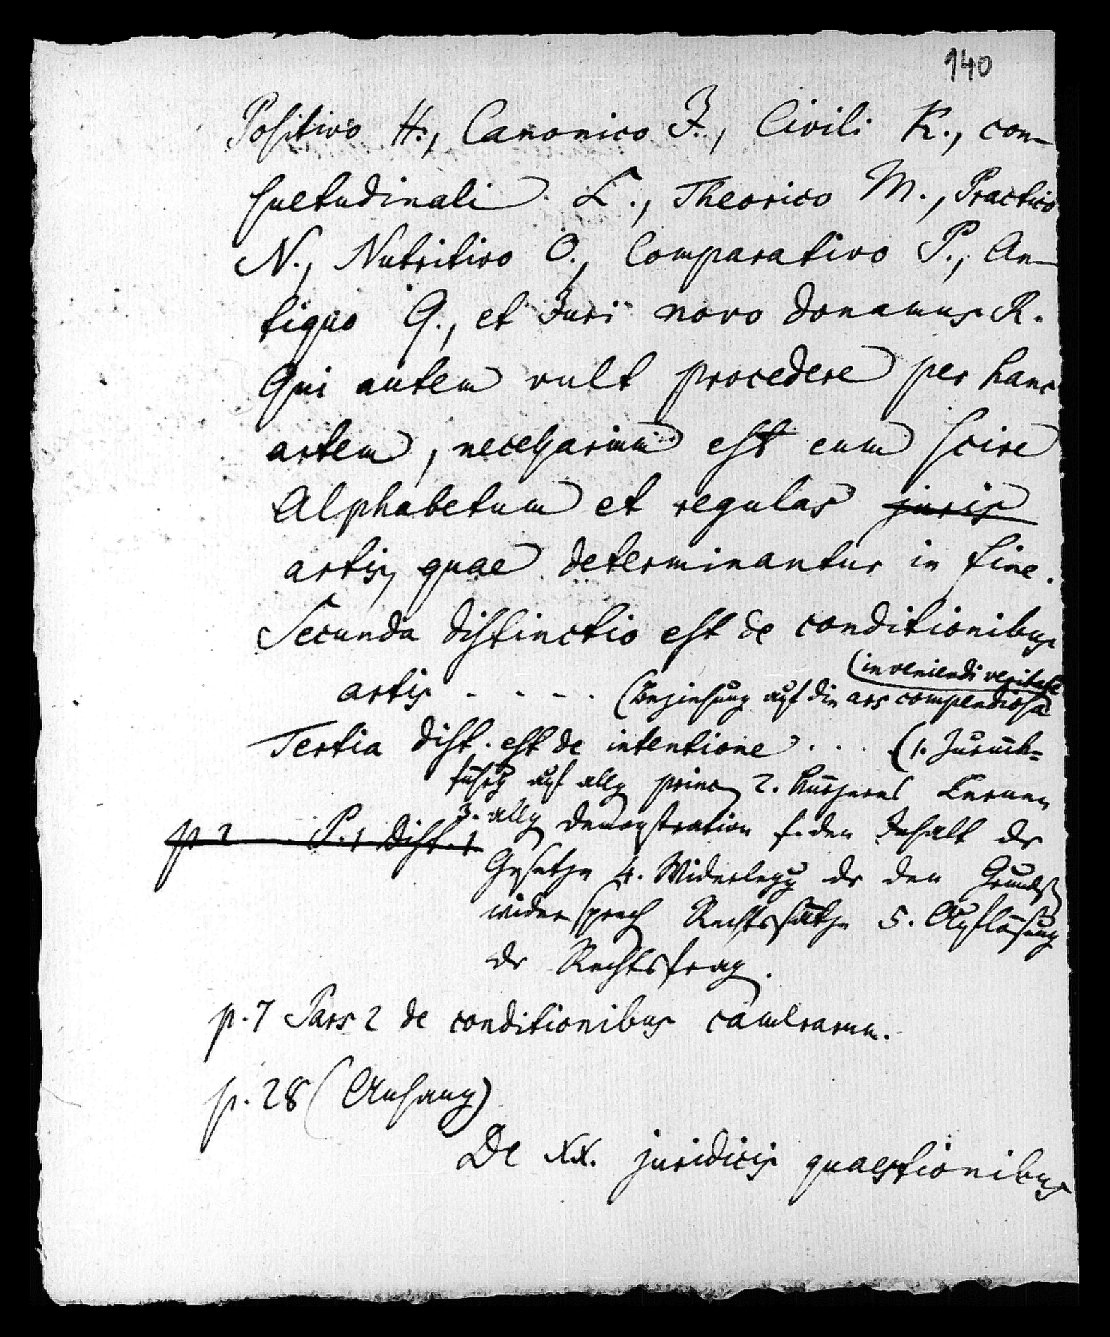 140
Positivo H., Canonico I., Civili K., con-
suetudinali L., Theorico M., Practico
N., Nutritivo O., Comparativo P., An-
tiquo Q., et Juri novo donamus R.
Qui autem vult procedere per hanc
artem, necessarium est eum scire
Alphabetum et regulas juris
artis, quae determinantur in fine.
Secunda distinctio est de conditionibus
(inveniendi veritatem
artis - - - - (Beziehung auf die ars compendiosa
Tertia dist. est de intentione . . . (1. Zurück-
führg auf allg princ 2. kürzeres Lernen
3. allg Demonstration f. den Inhalt der
p 2 P. 1 dist. 1
Gesetze 4. Widerlegg der den Grunds
widersprech Rechtssätze 5. Auflösung
der Rechtsfrag.
p. 7 Pars 2 de conditionibus camerarum.
p. 28 (Anhang)
De XX. juridicis quaestionibus